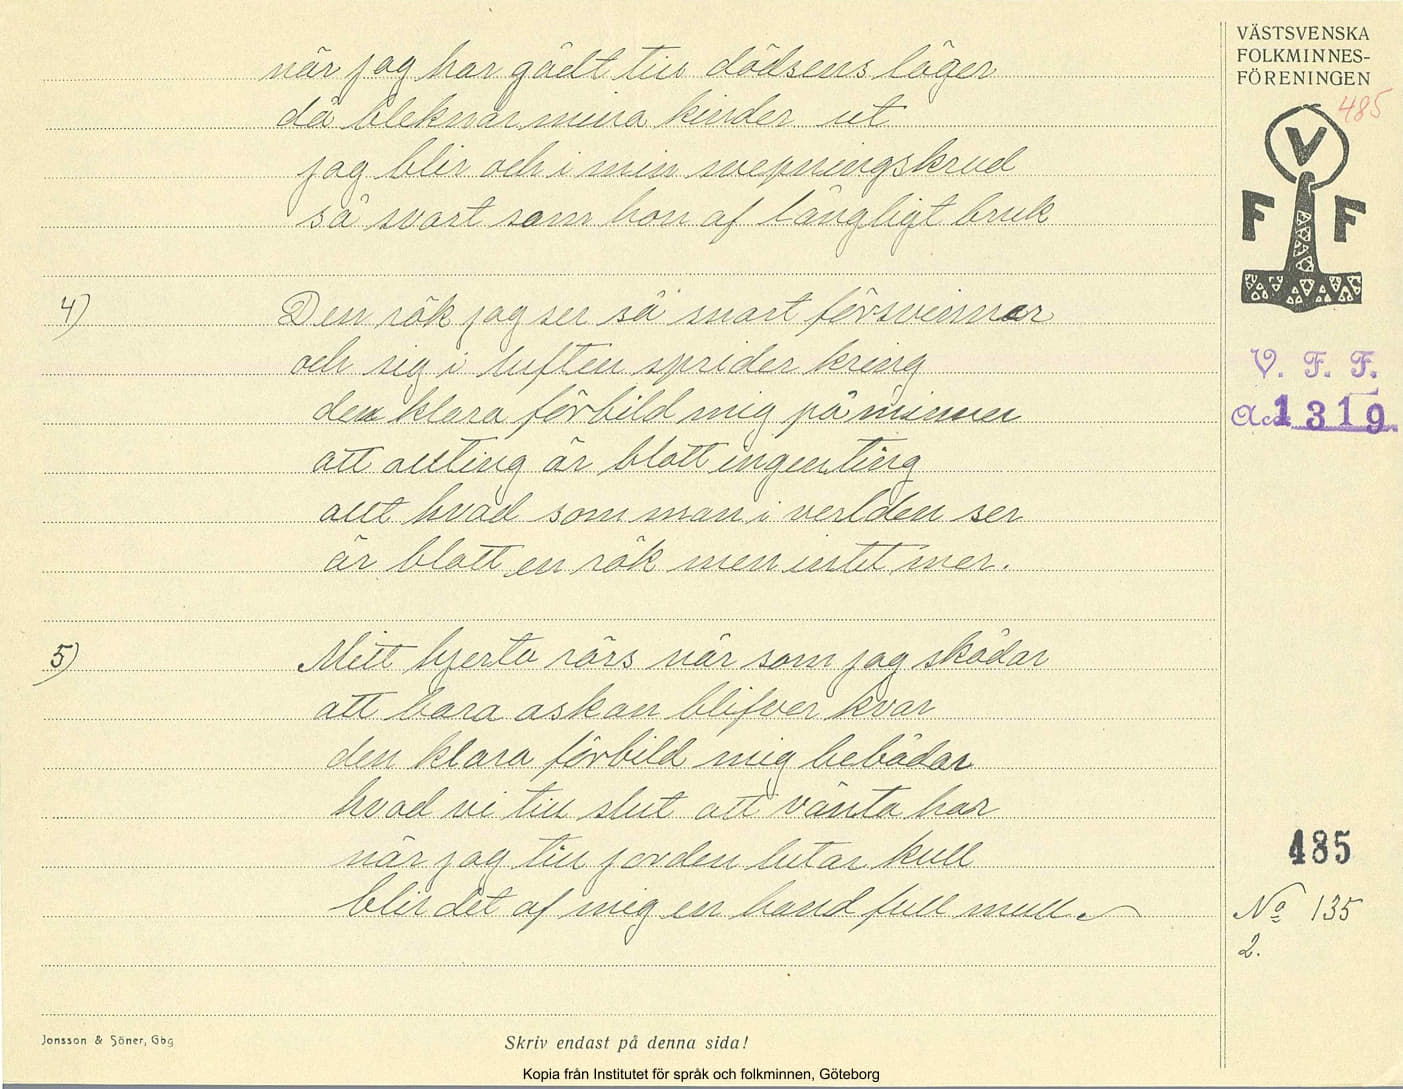 när jag har gådt till dödsens läger
då bleknar mina kinder ut
jag blir och i min svepningskrud
så svart som hon af långligt bruk
4) Den rök jag ser så snart försvinner
och sig i luften sprider kring
den klara förbild mig på minner
att allting är blott ingenting
allt hvad som man i verlden ser
är blott en rök men intet mer.
5) Mitt hjerta rörs när som jag skådar
att bara askan blifver kvar
den klara förbild mig bebådar
hvad vi till slut att vänta har
när jag till jorden lutar kull
blir det af mig en hand full mull.
Jonsson & Söner, Gbg
Skriv endast på denna sida!
Kopia från Institutet för språk och folkminnen, Göteborg
VÄSTSVENSKA
FOLKMINNES-
FÖRENINGEN
485
V
F F
V. F. F.
Acc. 1319
485
No 135
2.